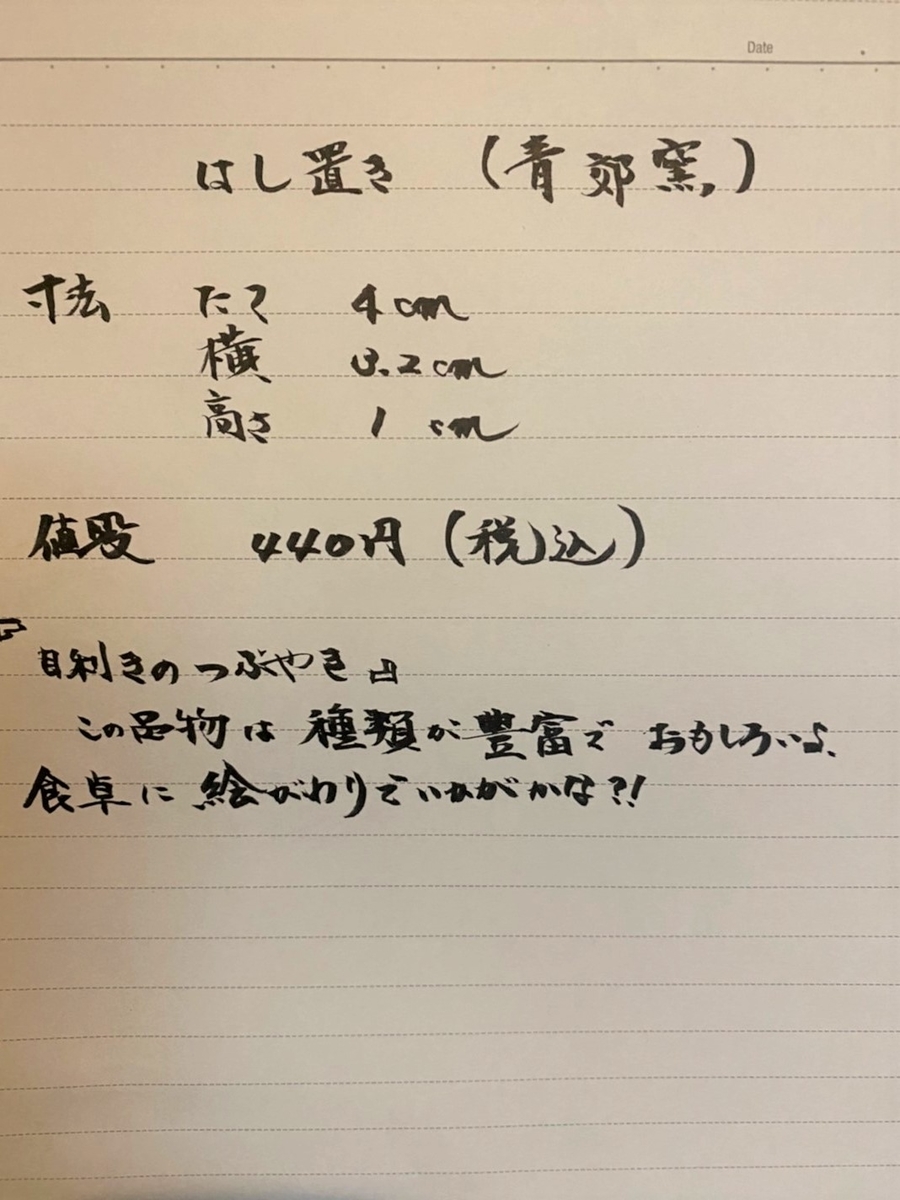 Date
はし置き (青郊窯)
寸法 たて 4cm
横 3.2cm
高さ 1cm
値段 440円(税込)
目利きのつぶやき
この品物は種類が豊富でおもしろいよ、
食卓に絵がわりでいかがかな?!